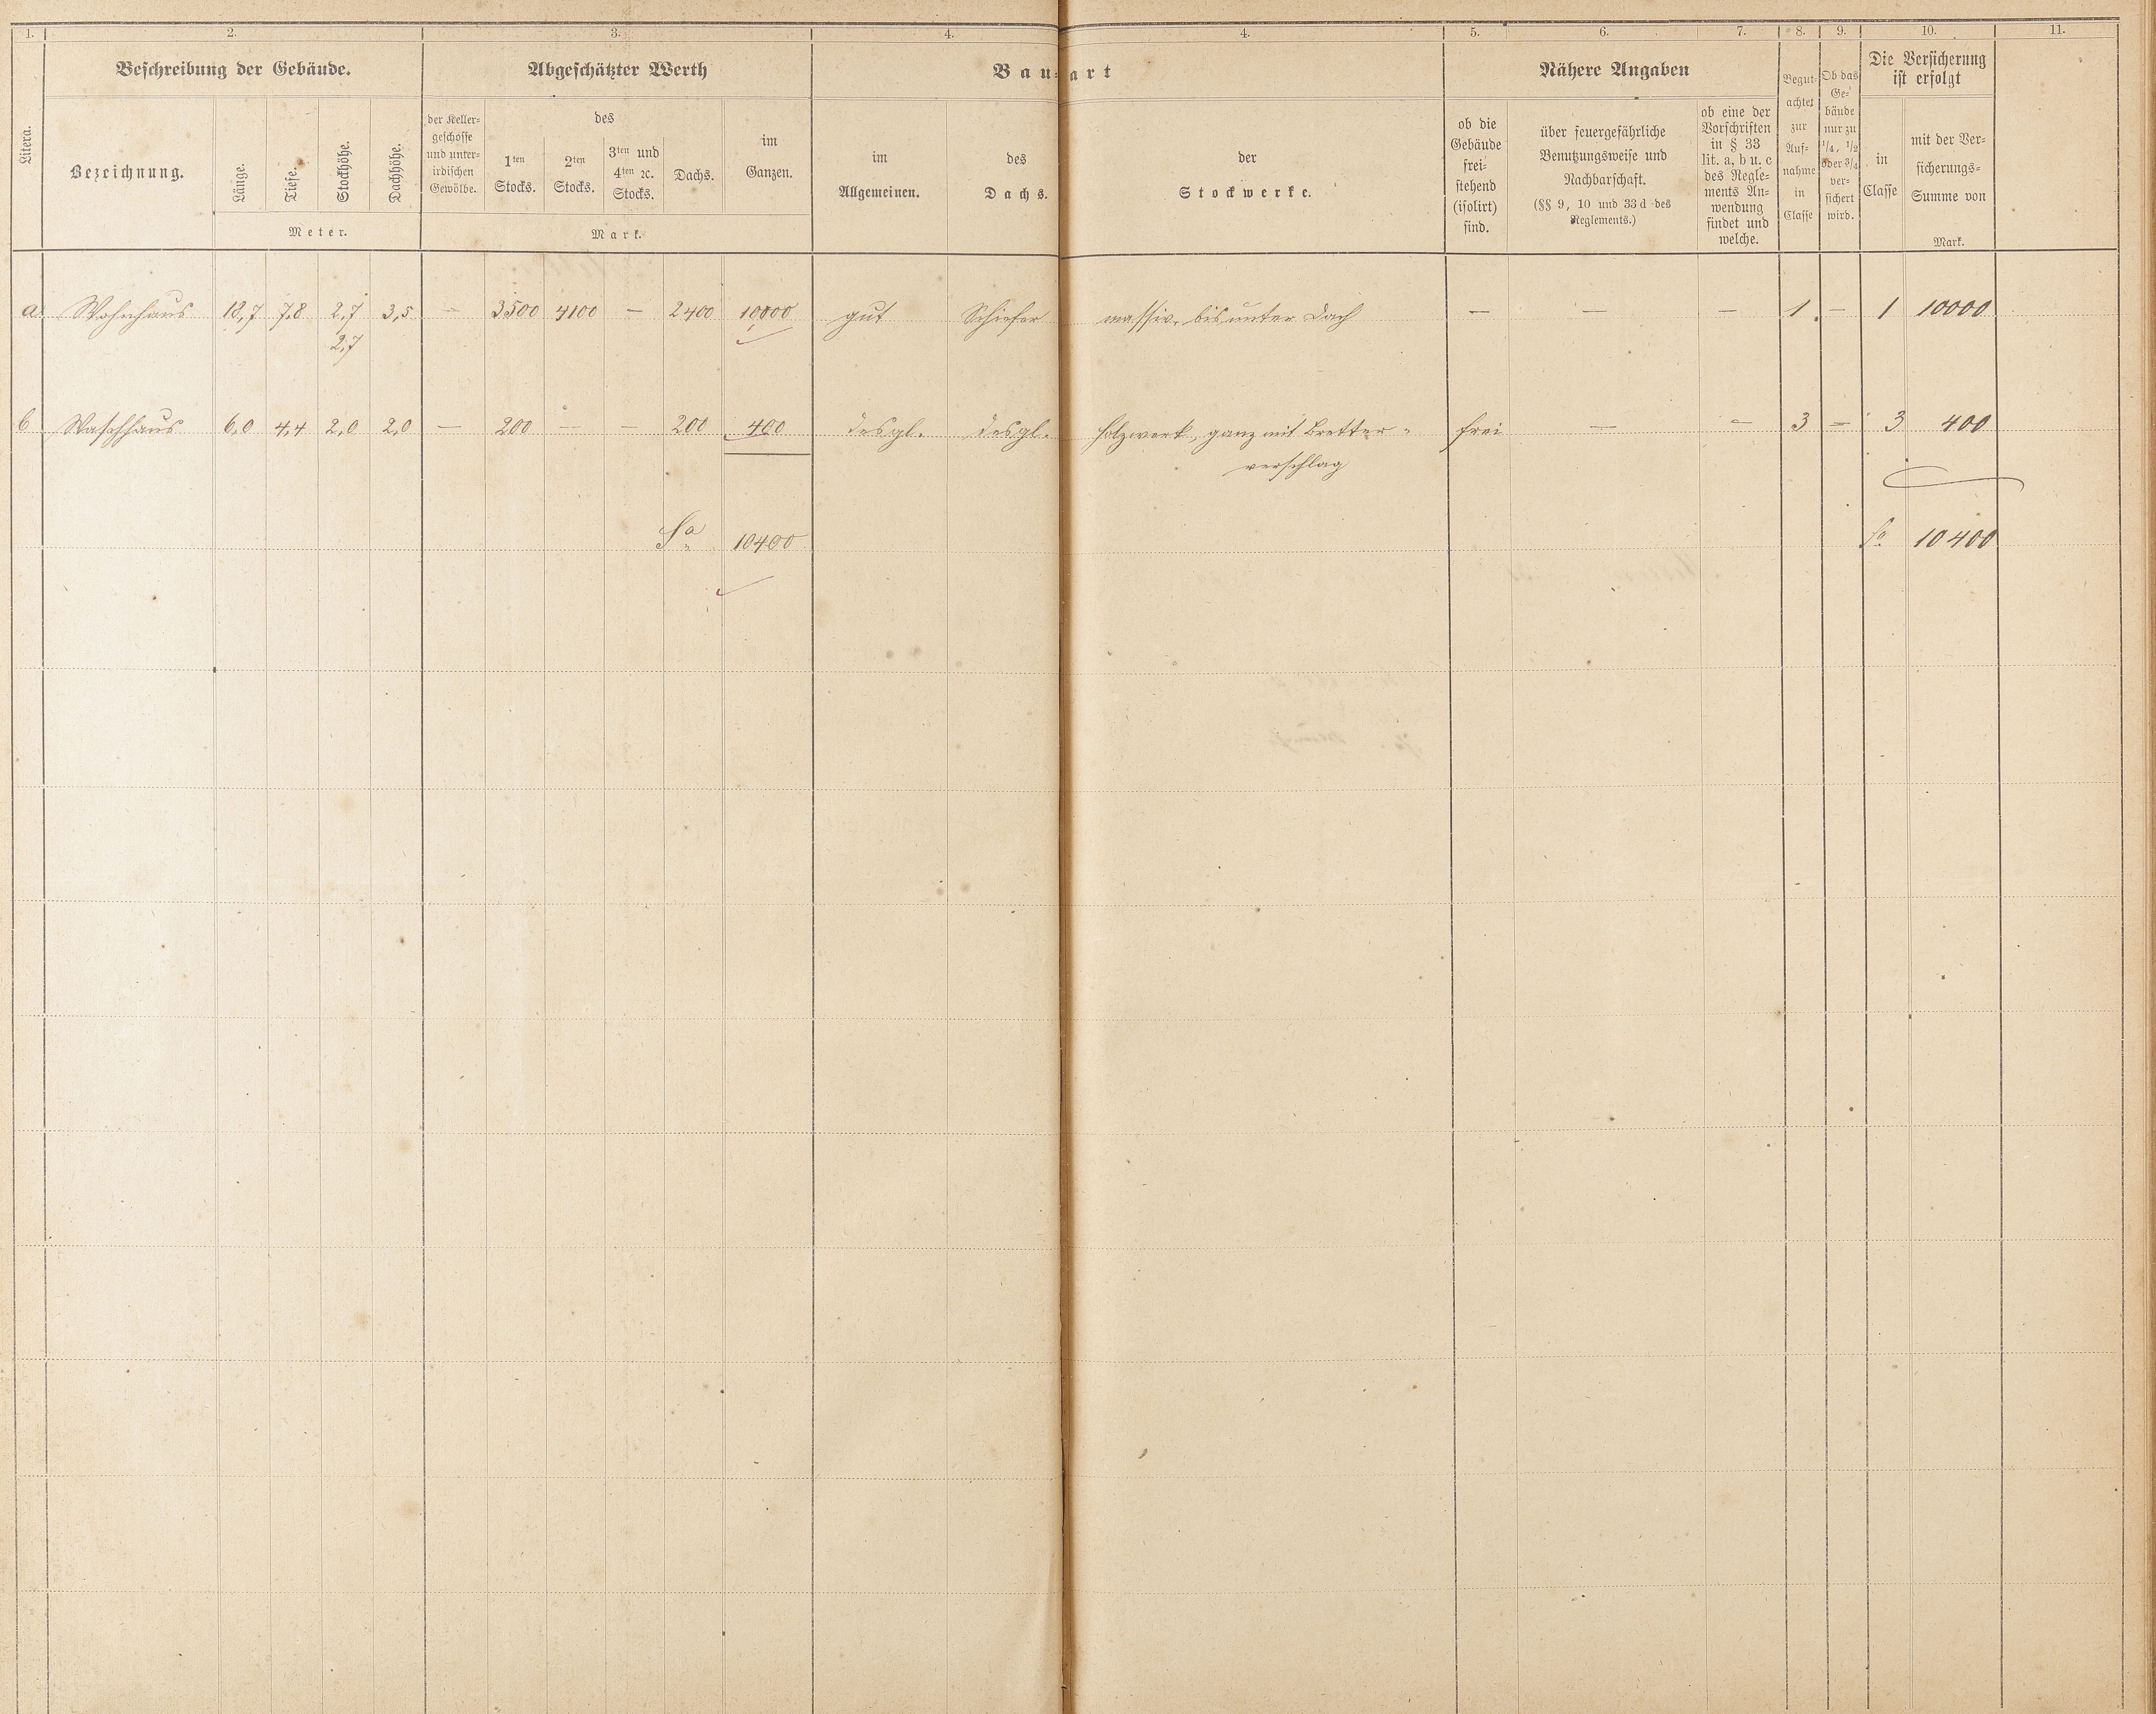 1. 2. 3. 4. 4. 5. 6. 7. 8. 9. 10. 11.
Beschreibung der Gebäude. Abgeschätzter Werth Bau-art Nähere Angaben
Litera.
Bezeichnung.
Länge. Tiefe. Stockhöhe. Dachhöhe.
Meter.
der Keller-
geschosse
und unter-
irdischen
Gewölbe.
des
1ten
Stocks.
2ten
Stocks.
3ten und
4ten ꝛc.
Stocks.
Dachs.
im
Ganzen.
Mark.
im
Allgemeinen.
des
Dachs.
der
Stockwerke.
ob die
Gebäude
frei-
stehend
(isolirt)
sind.
über feuergefährliche
Benutzungsweise und
Nachbarschaft.
(§§ 9, 10 und 33 d des
Reglements.)
ob eine der
Vorschriften
in § 33
lit. a, b u. c
des Regle-
ments An-
wendung
findet und
welche.
Begut-
achtet
zur
Auf-
nahme
in
Classe
Ob das
Ge-
bäude
nur zu
1/4, 1/2
oder 3/4
ver-
sichert
wird.
Die Versicherung
ist erfolgt
in
Classe
mit der Ver-
sicherungs-
Summe von
Mark.
a. Wohnhaus 18,7 7,8 2,7 3,5 — 3500 4100 — 2400 10000 gut Schiefer massiv bis unter Dach — — — 1. — 1 10000
2,7
b Waschhaus 6,0 4,4 2,0 2,0 — 200 — — 200 400 desgl. desgl. Holzwerk, ganz mit Bretter- frei — — 3 — 3 400
verschlag
Sa 10400 Sa. 10400